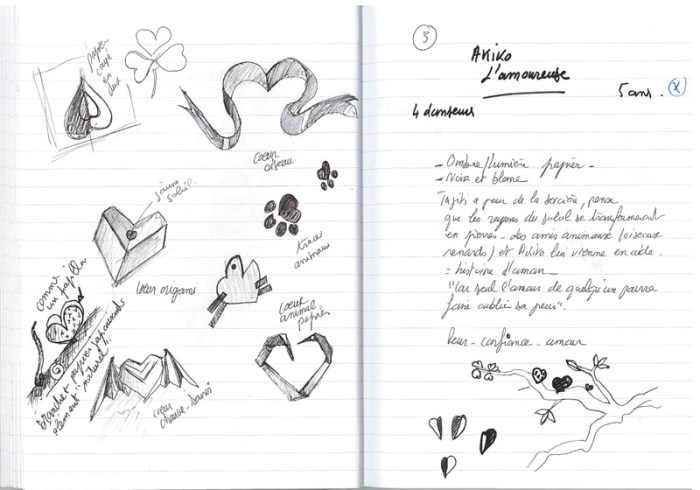 papier
coupé
en
deux
jaune
soleil
coeur
oiseau
trace
animaux
comme
un papillon
coeur origami
coeur
animal
papier
branche et papier
élément naturel
coeur
chauve-souris
3
Akiko
L'amoureuse
5 ans. X
4 danseurs
- Ombre/lumière papier -
- Noir et blanc
a peur de la sorcière, pense
que les rayons du soleil se transforment
en pierres - des amis animaux (oiseaux
renards) et Akiko lui vienne en aide.
= histoire d'amour
"Car seul l'amour de quelqu'un pourra
faire oublier sa peur".
Peur - confiance - amour